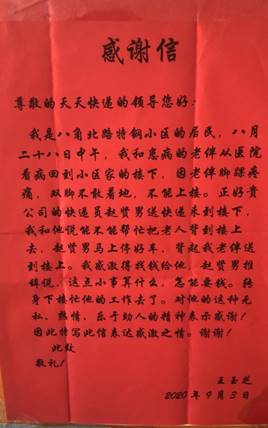 感谢信
尊敬的天天快递的领导您好:
我是八角北路特钢小区的居民,八月
二十八日中午,我和患病的老伴从医院
看病回到小区家的楼下,因老伴脚踝疼
痛,双脚不敢着地,不能上楼。正好贵
公司的快递员赵贤男送快递来到楼下,
我和他说能不能帮忙把老人背到楼上
去,赵贤男马上停好车,背起我老伴送
到楼上。我感激得我钱给他,赵贤男推
辞说,这点小事算什么,怎能要钱。转
身下楼忙他的工作去了。对他的这种无
私、热情、乐于助人的精神表示感谢!
因此特写此信表达感激之情。谢谢!
此致
敬礼!
王玉芝
2020年9月3日